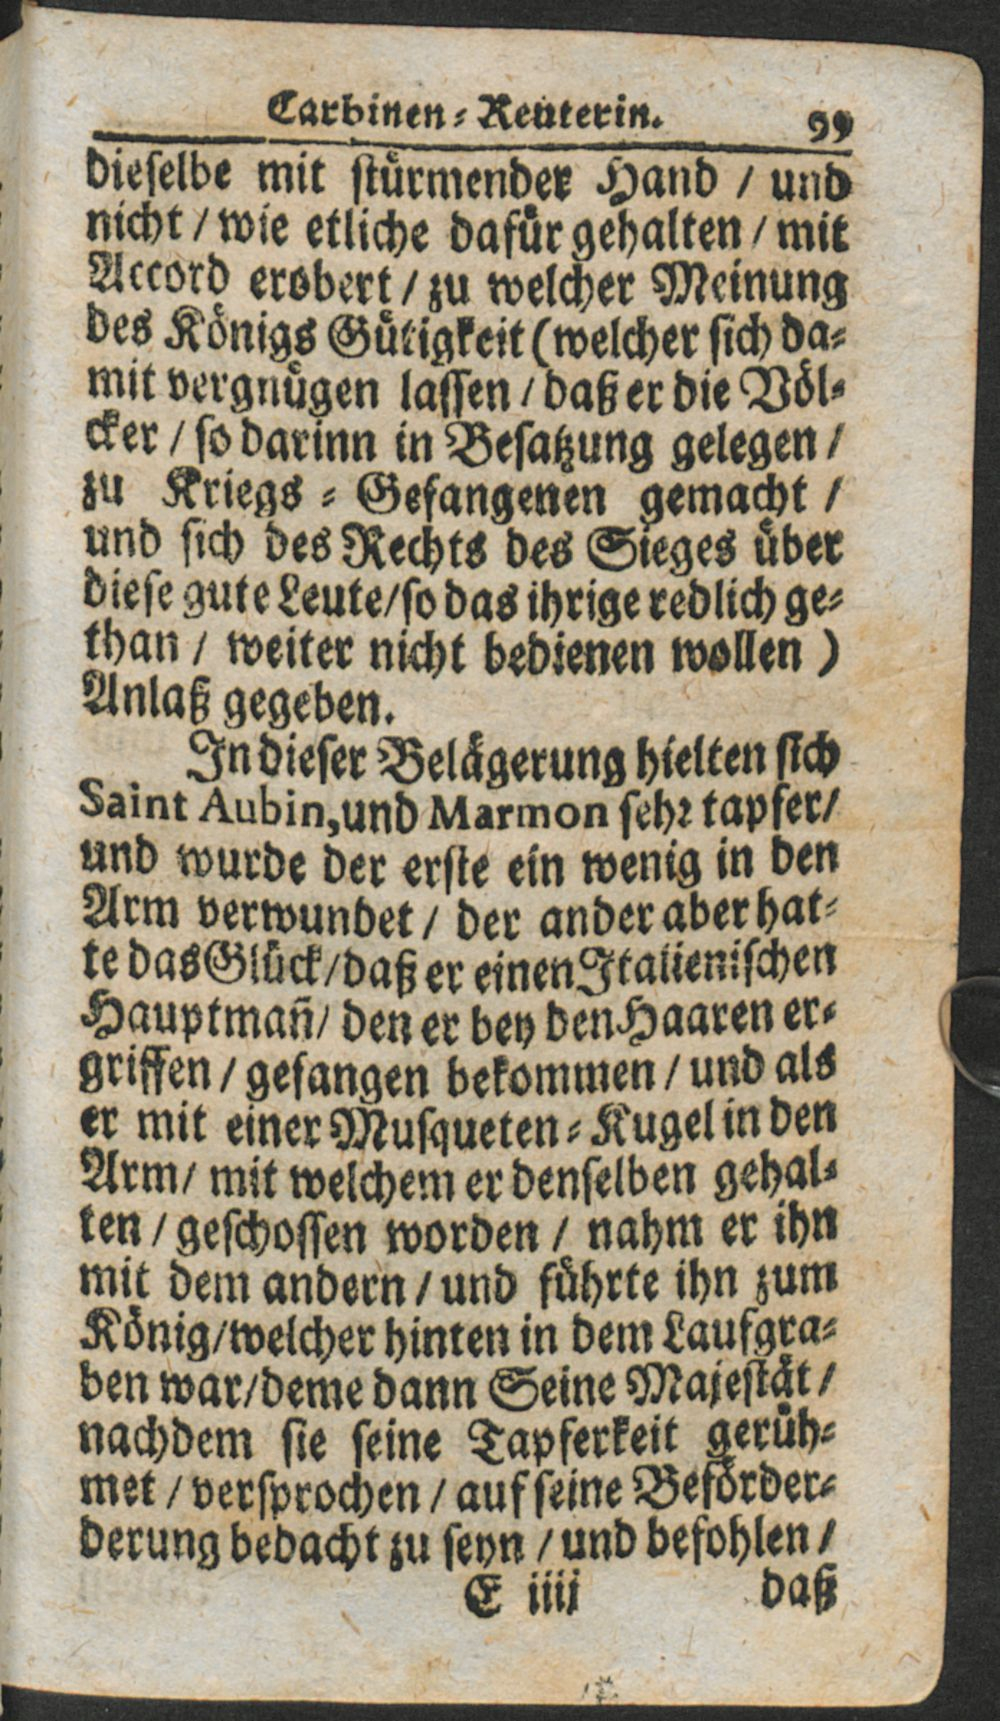 Carbinen-Reuterin. 99
dieselbe mit stürmender Hand / und
nicht / wie etliche dafür gehalten / mit
Accord erobert / zu welcher Meinung
des Königs Gütigkeit (welcher sich da-
mit vergnügen lassen / daß er die Völ-
cker / so darinn in Besatzung gelegen /
zu Kriegs-Gefangenen gemacht /
und sich des Rechts des Sieges über
diese gute Leute/so das ihrige redlich ge-
than / weiter nicht bedienen wollen )
Anlaß gegeben.
In dieser Belägerung hielten sich
Saint Aubin, und Marmon sehr tapfer/
und wurde der erste ein wenig in den
Arm verwundet / der ander aber hat-
te das Glück/daß er einen Italienischen
Hauptmañ/ den er bey den Haaren er-
griffen / gefangen bekommen / und als
er mit einer Musqueten-Kugel in den
Arm/ mit welchem er denselben gehal-
ten / geschossen worden / nahm er ihn
mit dem andern / und führte ihn zum
König/welcher hinten in dem Laufgra-
ben war/deme dann Seine Majestät /
nachdem sie seine Tapferkeit gerüh-
met / versprochen / auf seine Beförder-
derung bedacht zu seyn / und befohlen /
E iiij daß